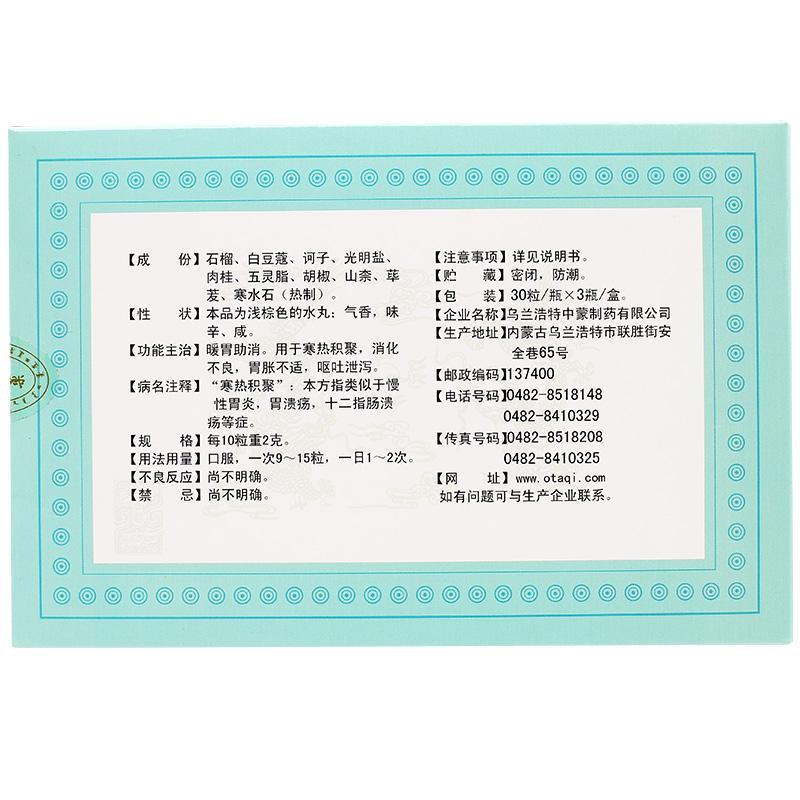 【成　份】石榴、白豆蔻、诃子、光明盐、
肉桂、五灵脂、胡椒、山柰、荜
茇、寒水石（热制）。
【性　状】本品为浅棕色的水丸；气香，味
辛、咸。
【功能主治】暖胃助消。用于寒热积聚，消化
不良，胃胀不适，呕吐泄泻。
【病名注释】“寒热积聚”：本方指类似于慢
性胃炎，胃溃疡，十二指肠溃
疡等症。
【规　格】每10粒重2克。
【用法用量】口服，一次9～15粒，一日1～2次。
【不良反应】尚不明确。
【禁　忌】尚不明确。
【注意事项】详见说明书。
【贮　藏】密闭，防潮。
【包　装】30粒/瓶×3瓶/盒。
【企业名称】乌兰浩特中蒙制药有限公司
【生产地址】内蒙古乌兰浩特市联胜街安
全巷65号
【邮政编码】137400
【电话号码】0482-8518148
0482-8410329
【传真号码】0482-8518208
0482-8410325
【网　址】www.otaqi.com
如有问题可与生产企业联系。